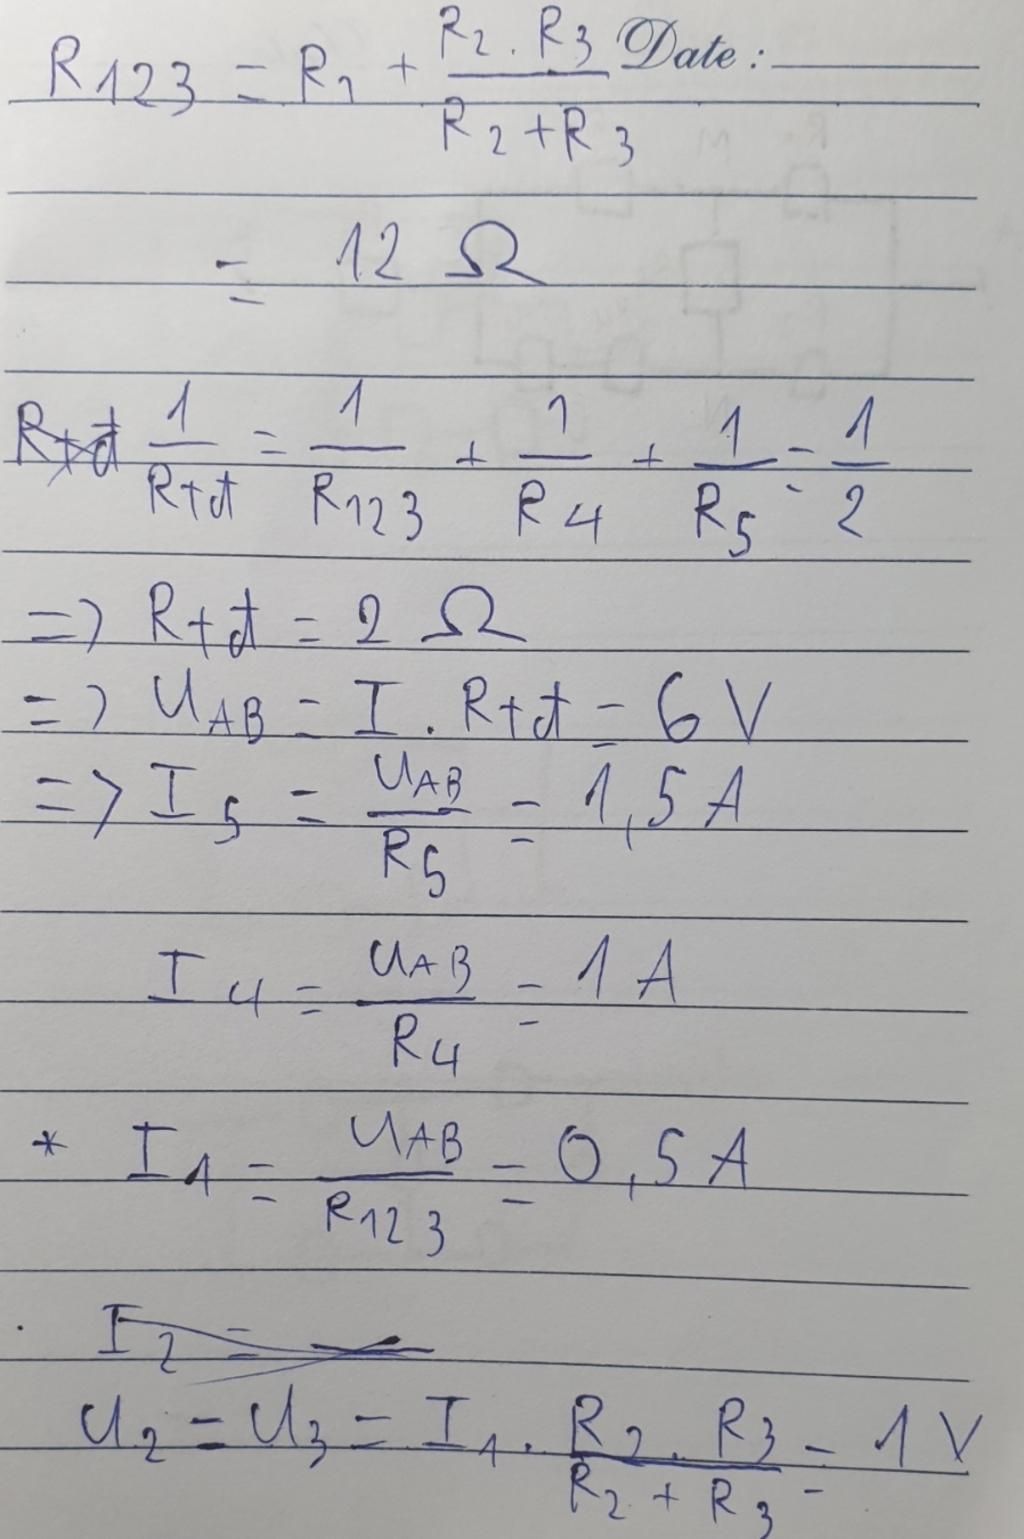 Date :
R123 = R1 + R2 . R3 / R2 + R3
= 12 Ω
1 / Rtđ = 1 / R123 + 1 / R4 + 1 / R5 = 1 / 2
=> Rtđ = 2 Ω
=> UAB = I . Rtđ = 6 V
=> I5 = UAB / R5 = 1,5 A
I4 = UAB / R4 = 1 A
* I1 = UAB / R123 = 0,5 A
I2 =
U2 = U3 = I1 . R2 . R3 / R2 + R3 = 1 V